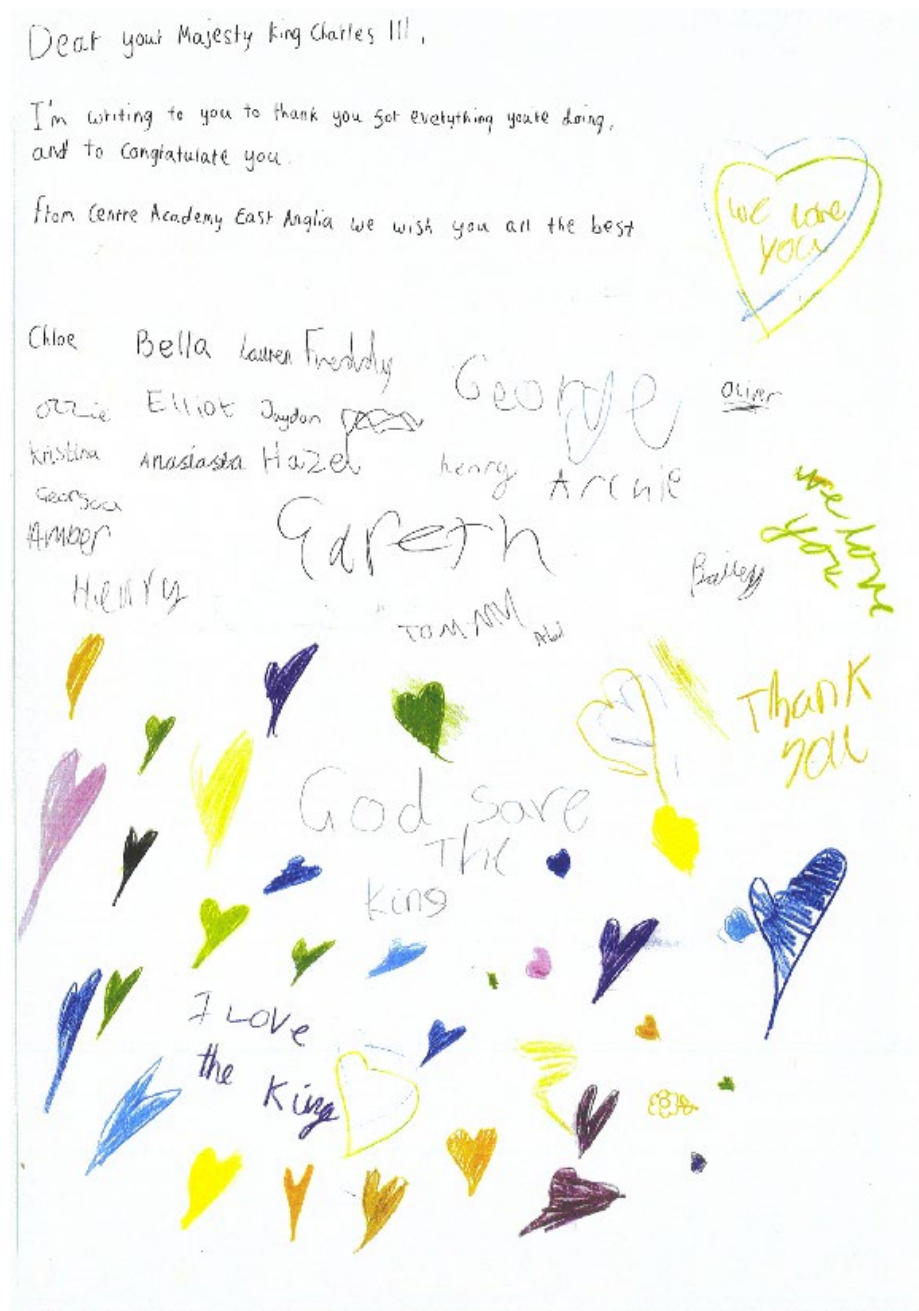 Dear your Majesty King Charles III,
I'm writing to you to thank you for everything you're doing,
and to Congratulate you.
from Centre Academy East Anglia we wish you all the best
we love
you
Chloe Bella Lauren Freddy
George
Oliver
Ozzie Elliot Jaydon
Kristina Anasiasta Hazel
henry Archie
Georgia
Amber
Gareth
we love
you
Henry
Bailey
Tommy
Thank
you
God save
The
King
I Love
the King